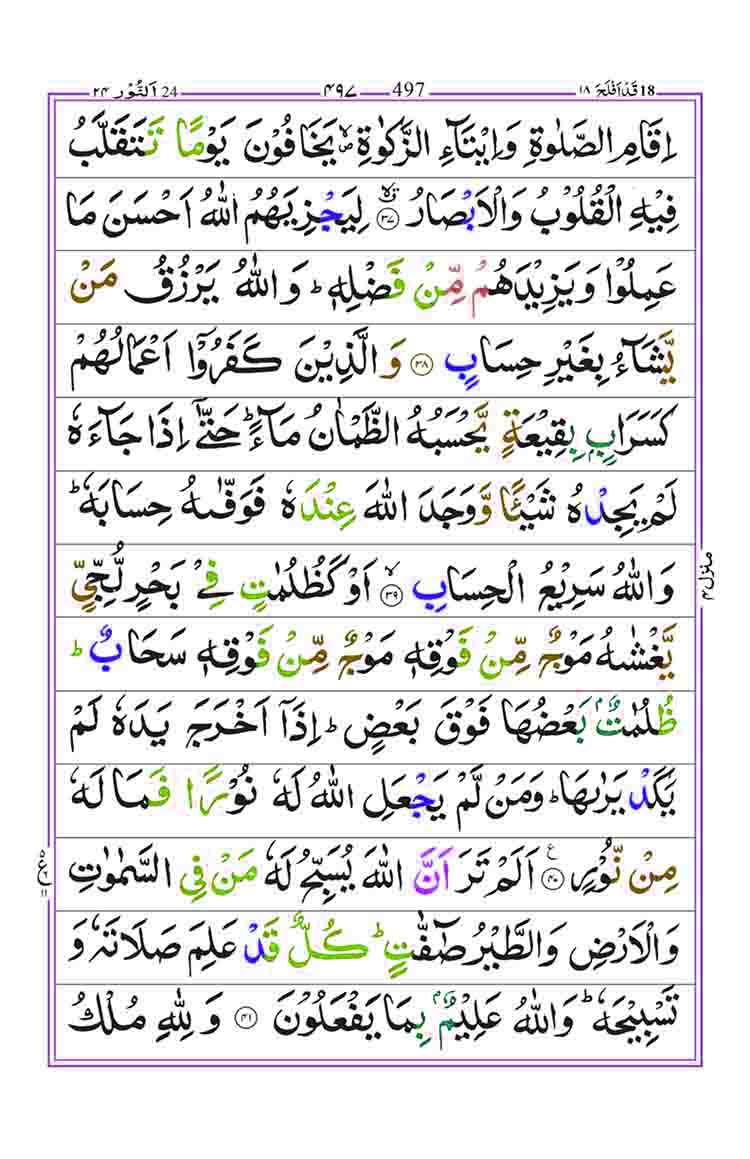 18 قَدْ اَفْلَحَ ١٨ 497 ۴۹۷ 24 اَلنُّوْر ٢۴
اِقَامِ الصَّلٰوةِ وَاِيْتَآءِ الزَّكٰوةِ ۙ يَخَافُوْنَ يَوْمًا تَتَقَلَّبُ
فِيْهِ الْقُلُوْبُ وَالْاَبْصَارُ ۙ۝۳۷ لِيَجْزِيَهُمُ اللّٰهُ اَحْسَنَ مَا
عَمِلُوْا وَيَزِيْدَهُمْ مِّنْ فَضْلِهٖ ؕ وَاللّٰهُ يَرْزُقُ مَنْ
يَّشَآءُ بِغَيْرِ حِسَابٍ ۝۳۸ وَالَّذِيْنَ كَفَرُوْۤا اَعْمَالُهُمْ
كَسَرَابٍۭ بِقِيْعَةٍ يَّحْسَبُهُ الظَّمْاٰنُ مَآءً ؕ حَتّٰۤى اِذَا جَآءَهٗ
لَمْ يَجِدْهُ شَيْـًٔا وَّوَجَدَ اللّٰهَ عِنْدَهٗ فَوَفّٰىهُ حِسَابَهٗ ؕ
وَاللّٰهُ سَرِيْعُ الْحِسَابِ ۙ۝۳۹ اَوْ كَظُلُمٰتٍ فِيْ بَحْرٍ لُّجِّيٍّ
يَّغْشٰىهُ مَوْجٌ مِّنْ فَوْقِهٖ مَوْجٌ مِّنْ فَوْقِهٖ سَحَابٌ ؕ
ظُلُمٰتٌۢ بَعْضُهَا فَوْقَ بَعْضٍ ؕ اِذَاۤ اَخْرَجَ يَدَهٗ لَمْ
يَكَدْ يَرٰىهَا ؕ وَمَنْ لَّمْ يَجْعَلِ اللّٰهُ لَهٗ نُوْرًا فَمَا لَهٗ
مِنْ نُّوْرٍ ۝۴۰ع اَلَمْ تَرَ اَنَّ اللّٰهَ يُسَبِّحُ لَهٗ مَنْ فِي السَّمٰوٰتِ
وَالْاَرْضِ وَالطَّيْرُ صٰٓفّٰتٍ ؕ كُلٌّ قَدْ عَلِمَ صَلَاتَهٗ وَ
تَسْبِيْحَهٗ ؕ وَاللّٰهُ عَلِيْمٌۢ بِمَا يَفْعَلُوْنَ ۝۴۱ وَلِلّٰهِ مُلْكُ
منزل ۴